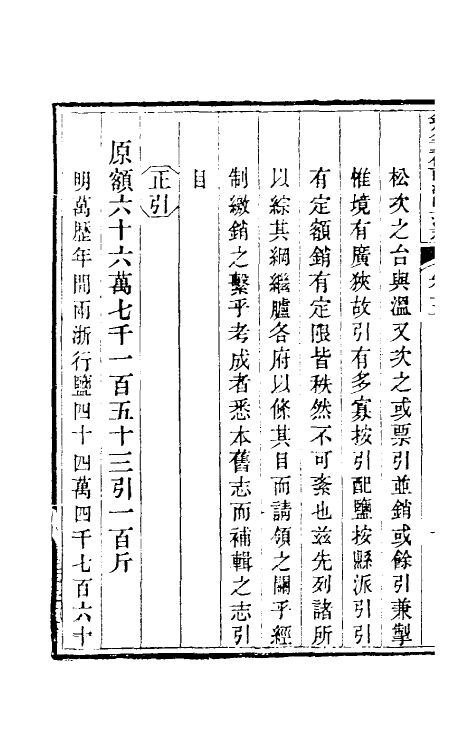 松次之台與溫又次之或票引並銷或餘引兼掣
惟境有廣狹故引有多寡按引配鹽按縣派引引
有定額銷有定限皆秩然不可紊也兹先列諸所
以綜其綱繼臚各府以條其目而請領之關乎經
制繳銷之繫乎考成者悉本舊志而補輯之志引
目
正引
原額六十六萬七千一百五十三引一百斤
明萬歷年間兩浙行鹽四十四萬四千七百六十